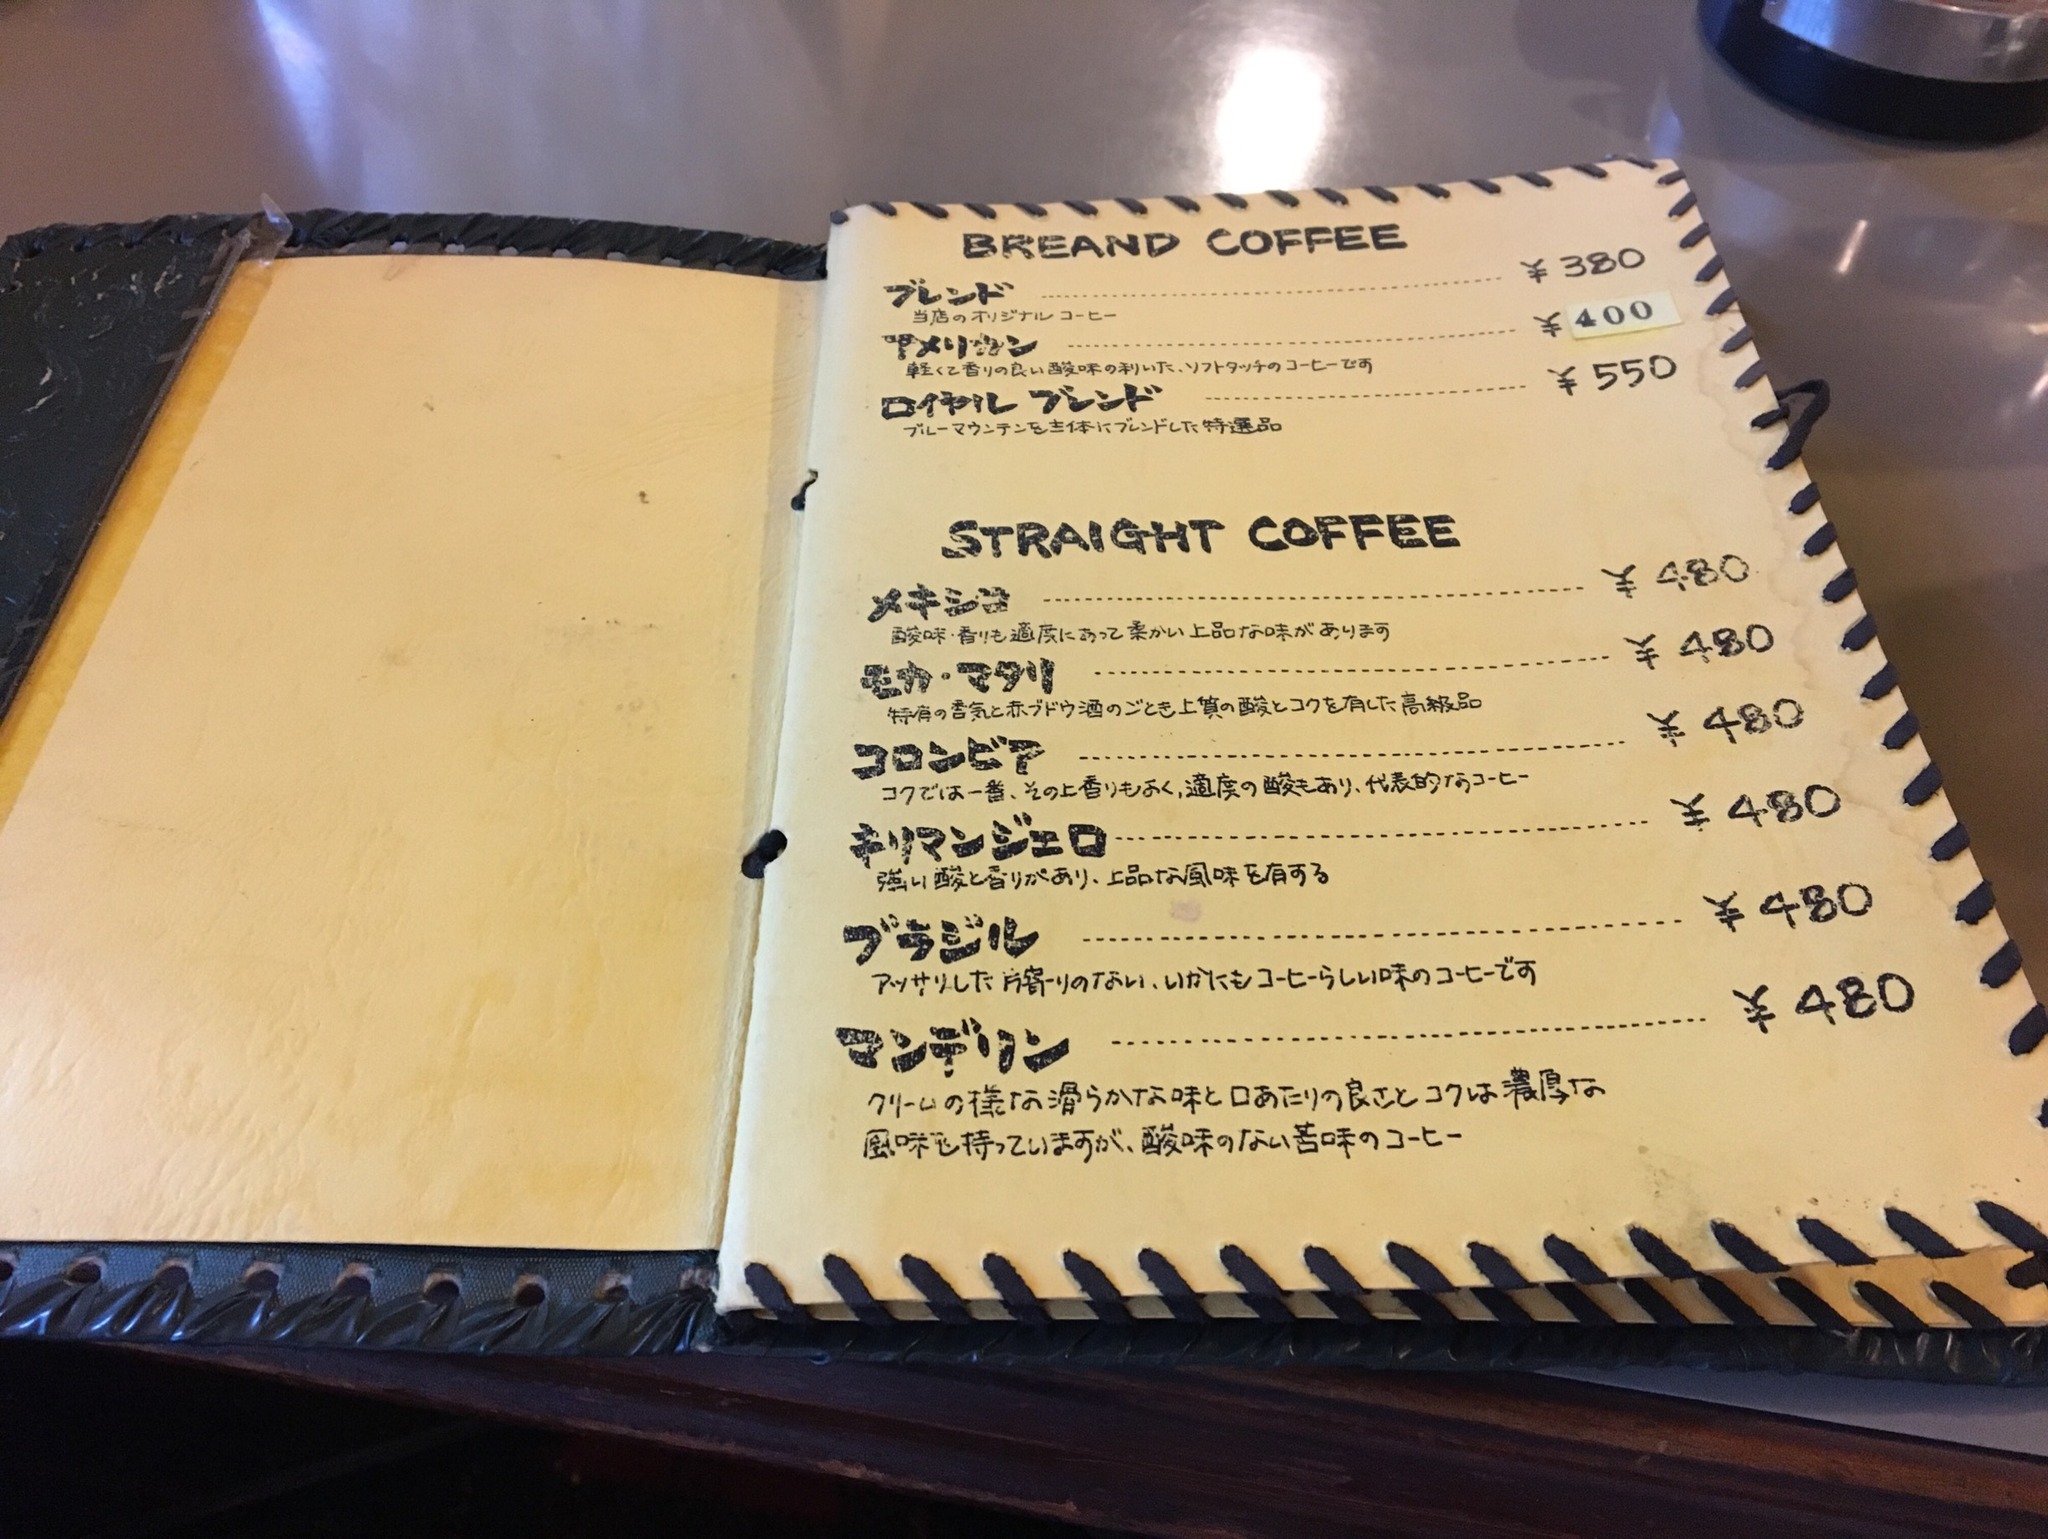 BREAND COFFEE
ブレンド ¥380
当店のオリジナルコーヒー
アメリカン ¥400
軽くて香りの良い酸味の利いた、ソフトタッチのコーヒーです
ロイヤル ブレンド ¥550
ブルーマウンテンを主体にブレンドした特選品
STRAIGHT COFFEE
メキシコ ¥480
酸味・香りも適度にあって柔かい上品な味があります
モカ・マタリ ¥480
特有の香気と赤ブドウ酒のごとき上質の酸とコクを有した高級品
コロンビア ¥480
コクでは一番、その上香りもよく、適度の酸もあり、代表的なコーヒー
キリマンジェロ ¥480
強い酸と香りがあり、上品な風味を有する
ブラジル ¥480
アッサリした片寄りのない、いかにもコーヒーらしい味のコーヒーです
マンデリン ¥480
クリームの様な滑らかな味と口あたりの良さとコクは濃厚な
風味を持っていますが、酸味のない苦味のコーヒー